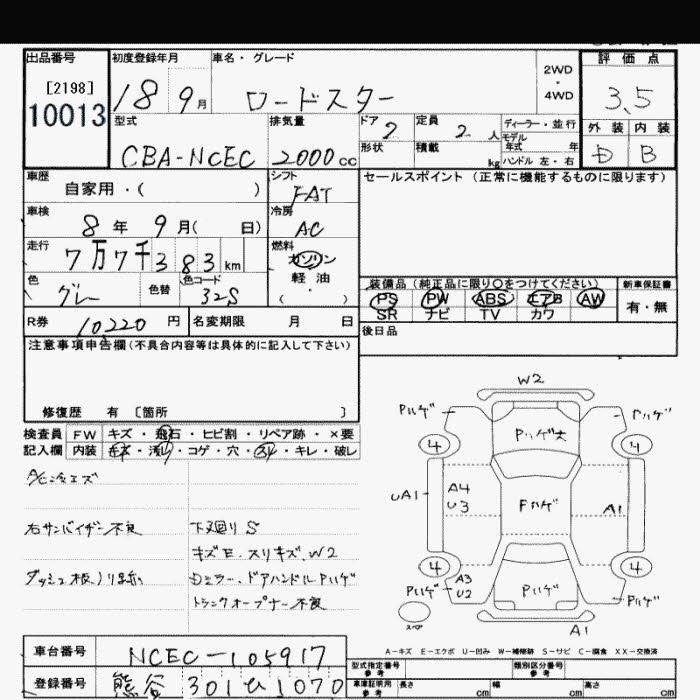 出品番号
[2198]
10013
初度登録年月
18 9月
車名・グレード
ロードスター
2WD
・
4WD
評価点
3.5
外装 内装
D B
型式
CBA-NCEC
排気量
2000cc
ドア
2
形状
定員
2人
積載
kg
ディーラー・並行
モデル
年式 年
ハンドル 左・右
車歴
自家用・( )
シフト
FAT
セールスポイント (正常に機能するものに限ります)
車検
8年 9月( 日)
冷房
AC
走行
7万7千383km
燃料
ガソリン
軽油
( ・ )
色
グレー
色替
色コード
32S
装備品(純正品に限り○をつけてください)
PS PW ABS エアB AW
SR ナビ TV カワ
新車保証書
有・無
R券 10220円
名変期限 月 日
後日品
注意事項申告欄(不具合内容等は具体的に記入して下さい)
修復歴 有 〔箇所 〕
検査員
記入欄
FW キズ・飛石・ヒビ割・リペア跡・×要
内装 キズ・汚レ・コゲ・穴・スレ・キレ・破レ
右サンバイザー不良
下廻りS
キズE.スリキズ.W2
Dミラー、ドアハンドルPハゲ
トランクオープナー不良
W2
Pハゲ Pハゲ大 Pハゲ
4 4
UA1 A4 U3 Fハゲ A1
4 4
Pハゲ A3 U2 Pハゲ Pハゲ
スペア
A1
A-キズ E-エクボ U-凹み W-補修跡 S-サビ C-腐食 XX-交換済
車台番号 NCEC-105917
登録番号 熊谷 301 ひ 1070
型式指定番号
参考
類別区分番号
参考
車庫証明用
参考
長さ cm 幅 cm 高さ cm